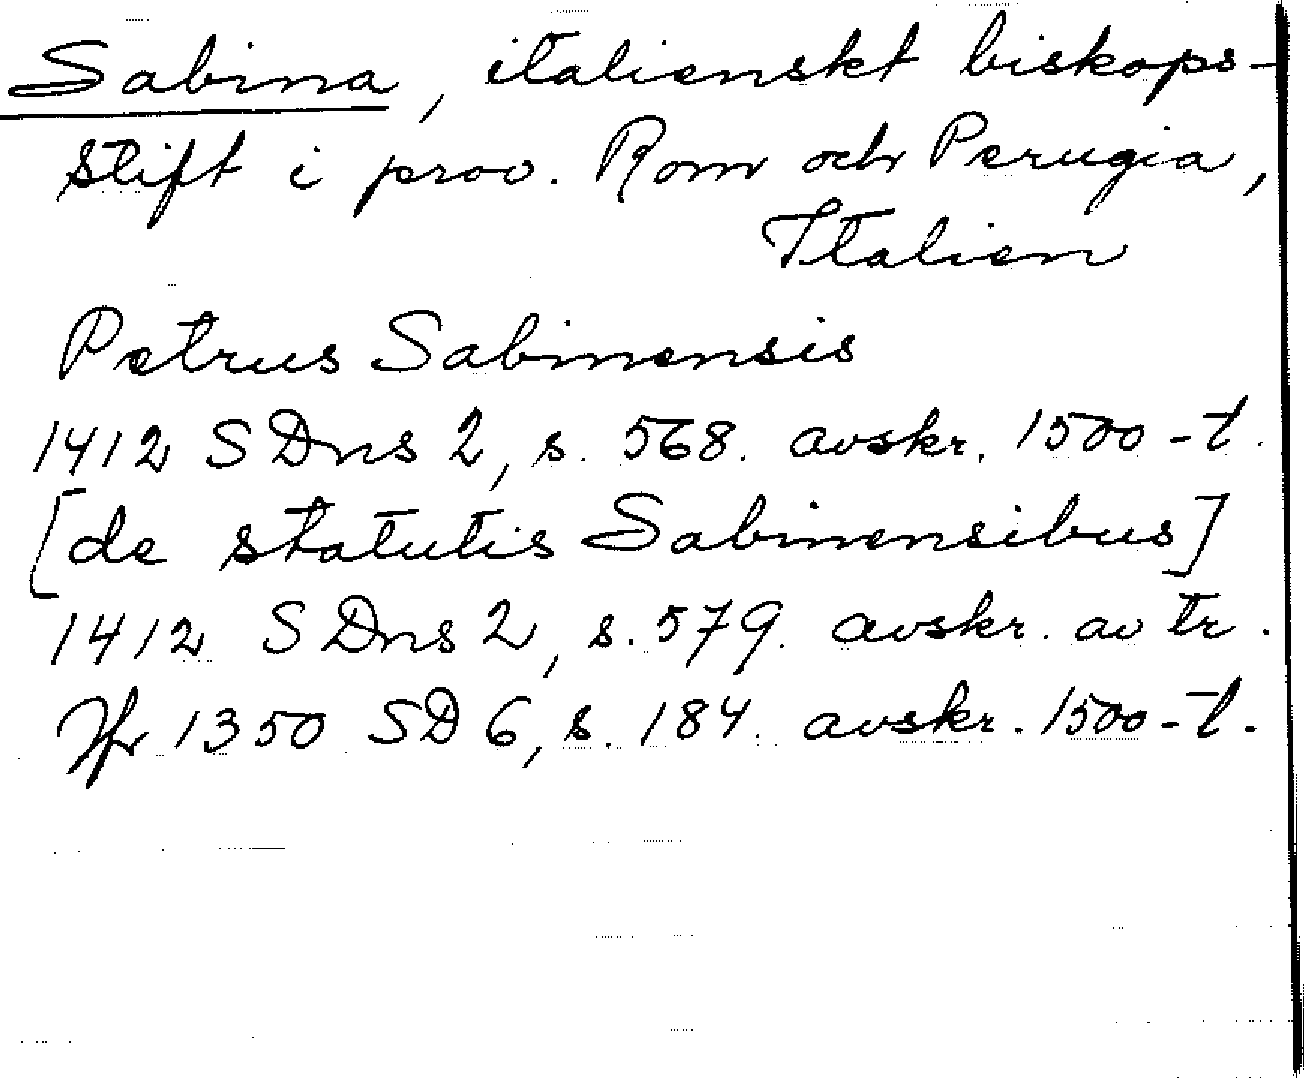 Sabina, italienskt biskops-
stift i prov. Rom och Perugia,
Italien
Petrus Sabinensis
1412 SDns 2, s. 568. avskr. 1500-t.
[de statutis Sabinensibus]
1412 SDns 2, s. 579. avskr. av tr.
Jfr 1350 SD 6, s. 184. avskr. 1500-t.